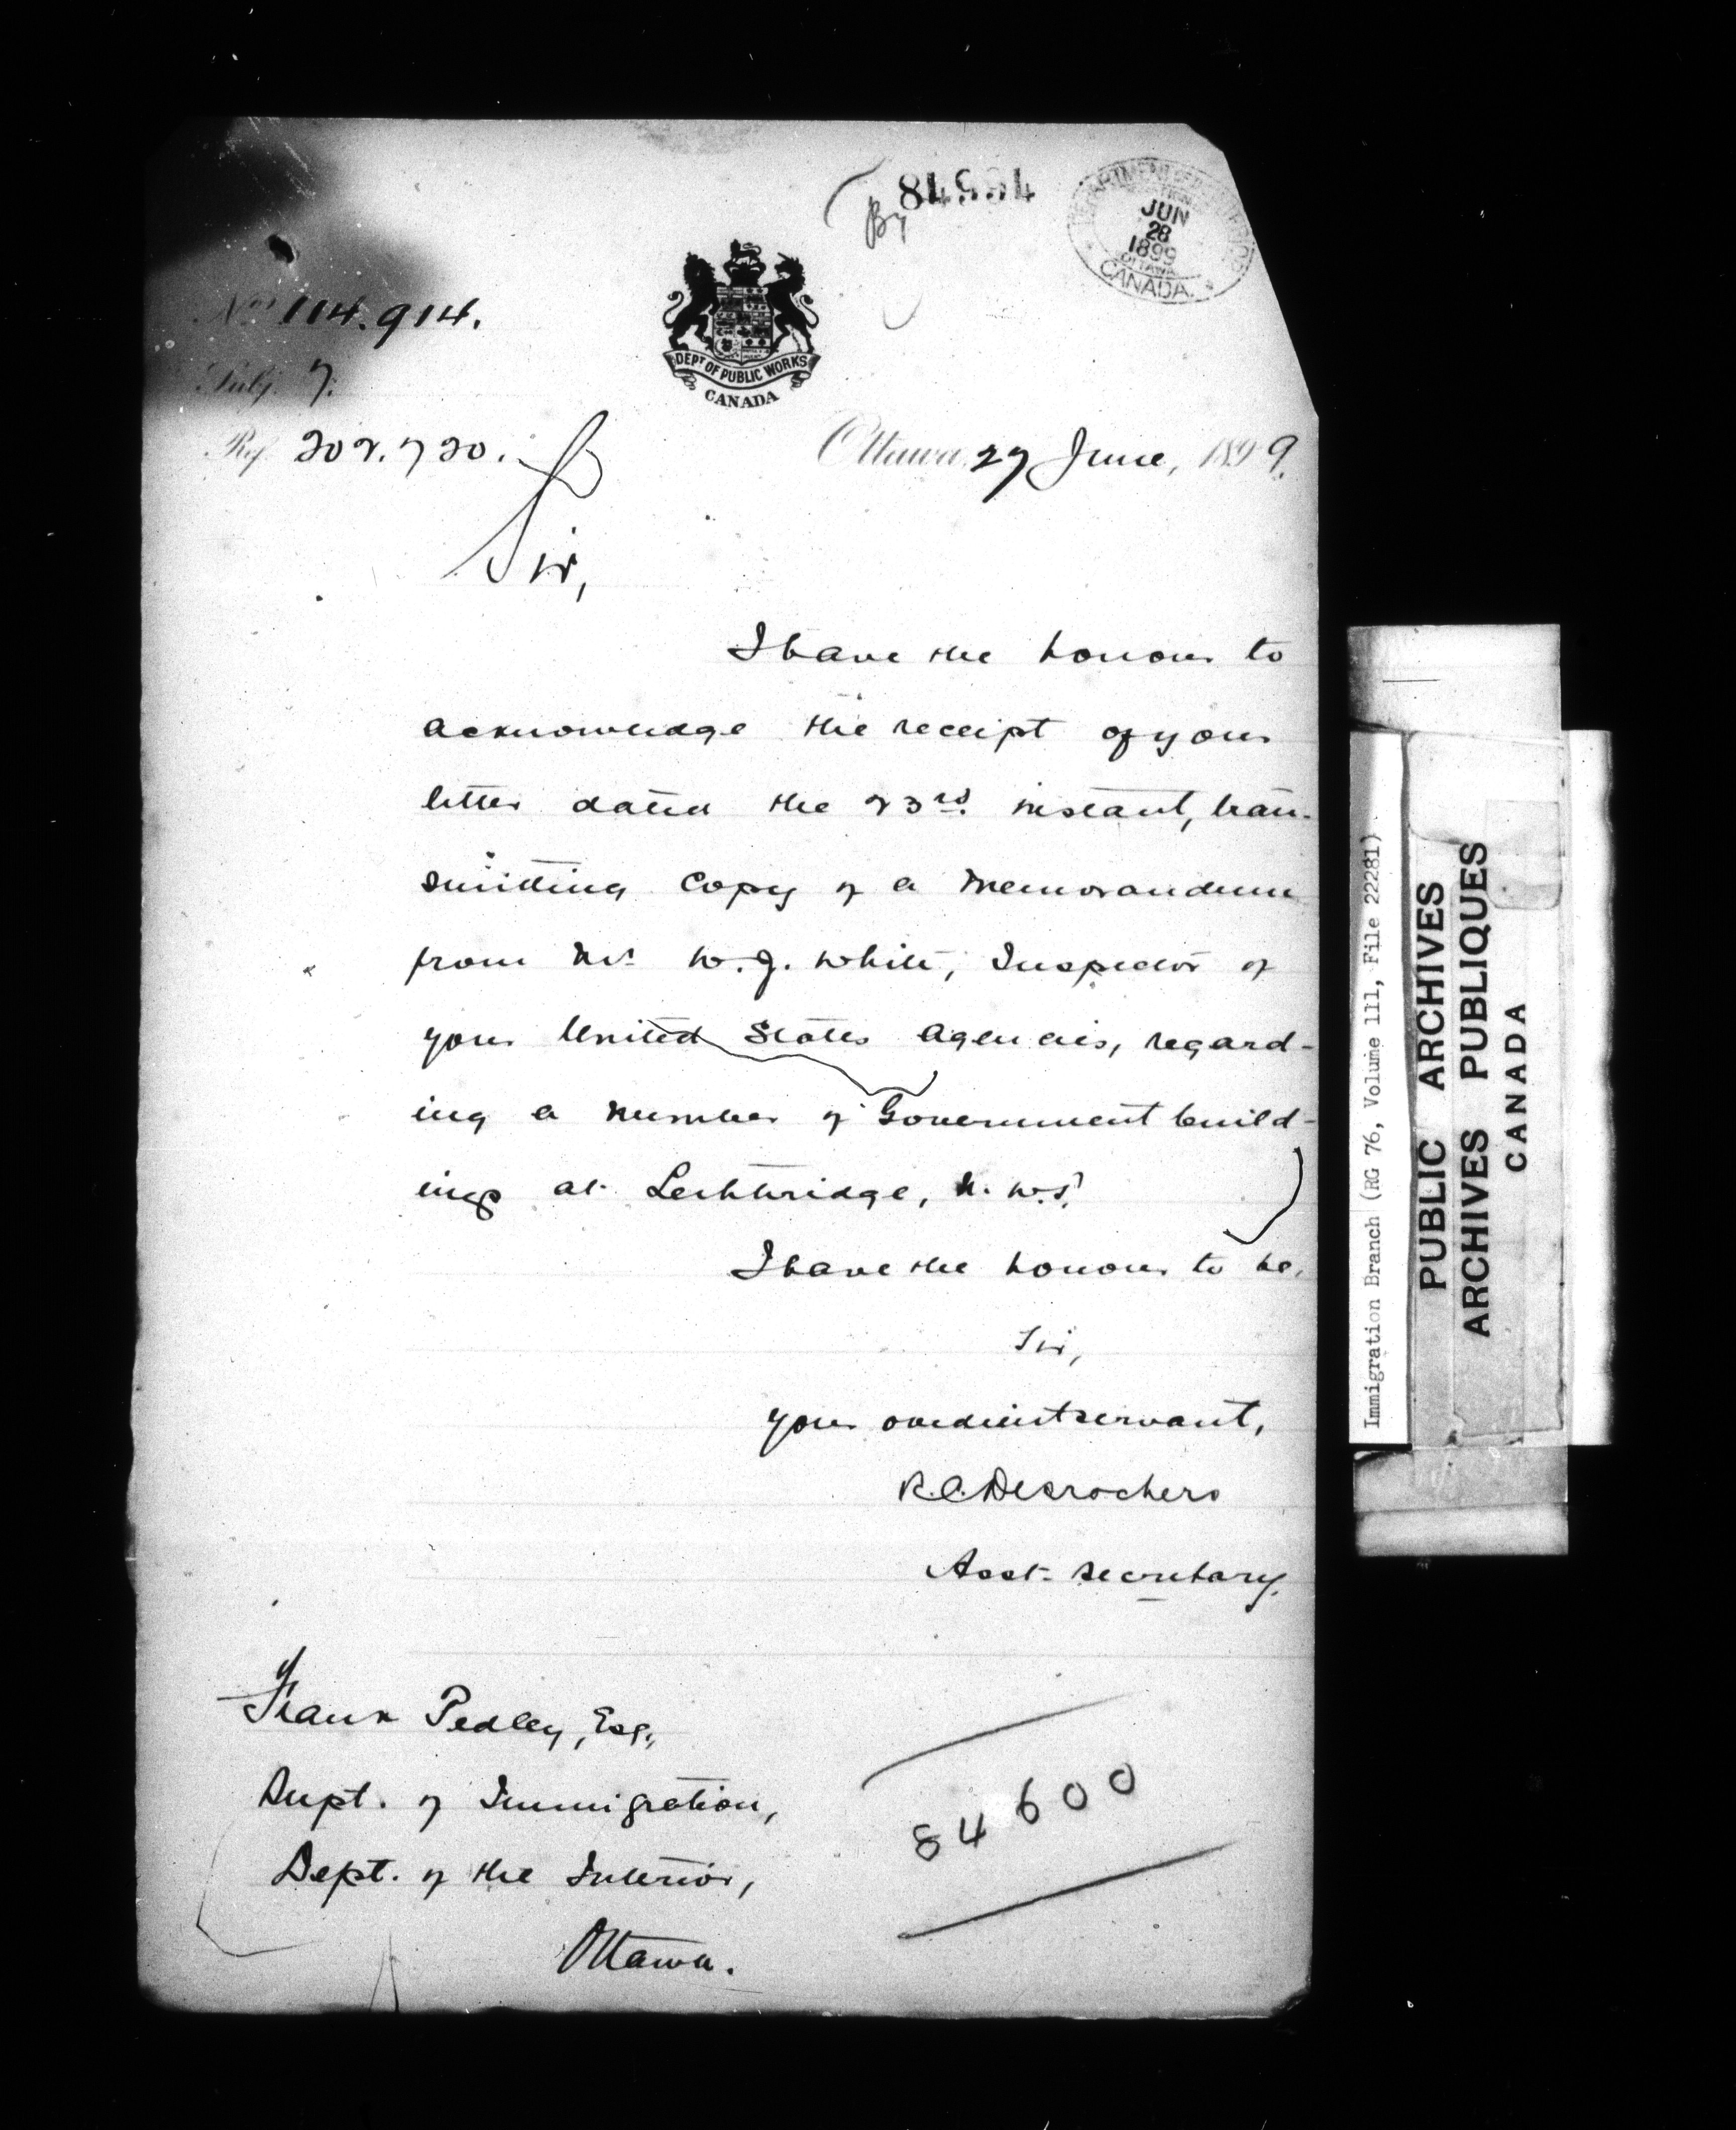 84994
By
DEPARTMENT OF THE INTERIOR
JUN
28
1899
OTTAWA
CANADA.
No. 114.914.
Subj. 7.
DEPT OF PUBLIC WORKS
CANADA
Ref. 202.720.
Ottawa, 27 June, 1899.
Sir,
I have the honour to
acknowledge the receipt of your
letter dated the 23rd. instant, tran-
smitting copy of a memorandum
from Mr. W. J. White, Inspector of
your United States Agencies, regard-
ing a number of Government build-
ings at Lethbridge, N.W.T.
I have the honour to be,
Sir,
your obedient servant,
R.C. Desrochers
Asst. Secretary.
Frank Pedley, Esq.,
Supt. of Immigration,
Dept. of the Interior,
Ottawa.
84600
Immigration Branch (RG 76, Volume 111, File 22281)
PUBLIC ARCHIVES
ARCHIVES PUBLIQUES
CANADA